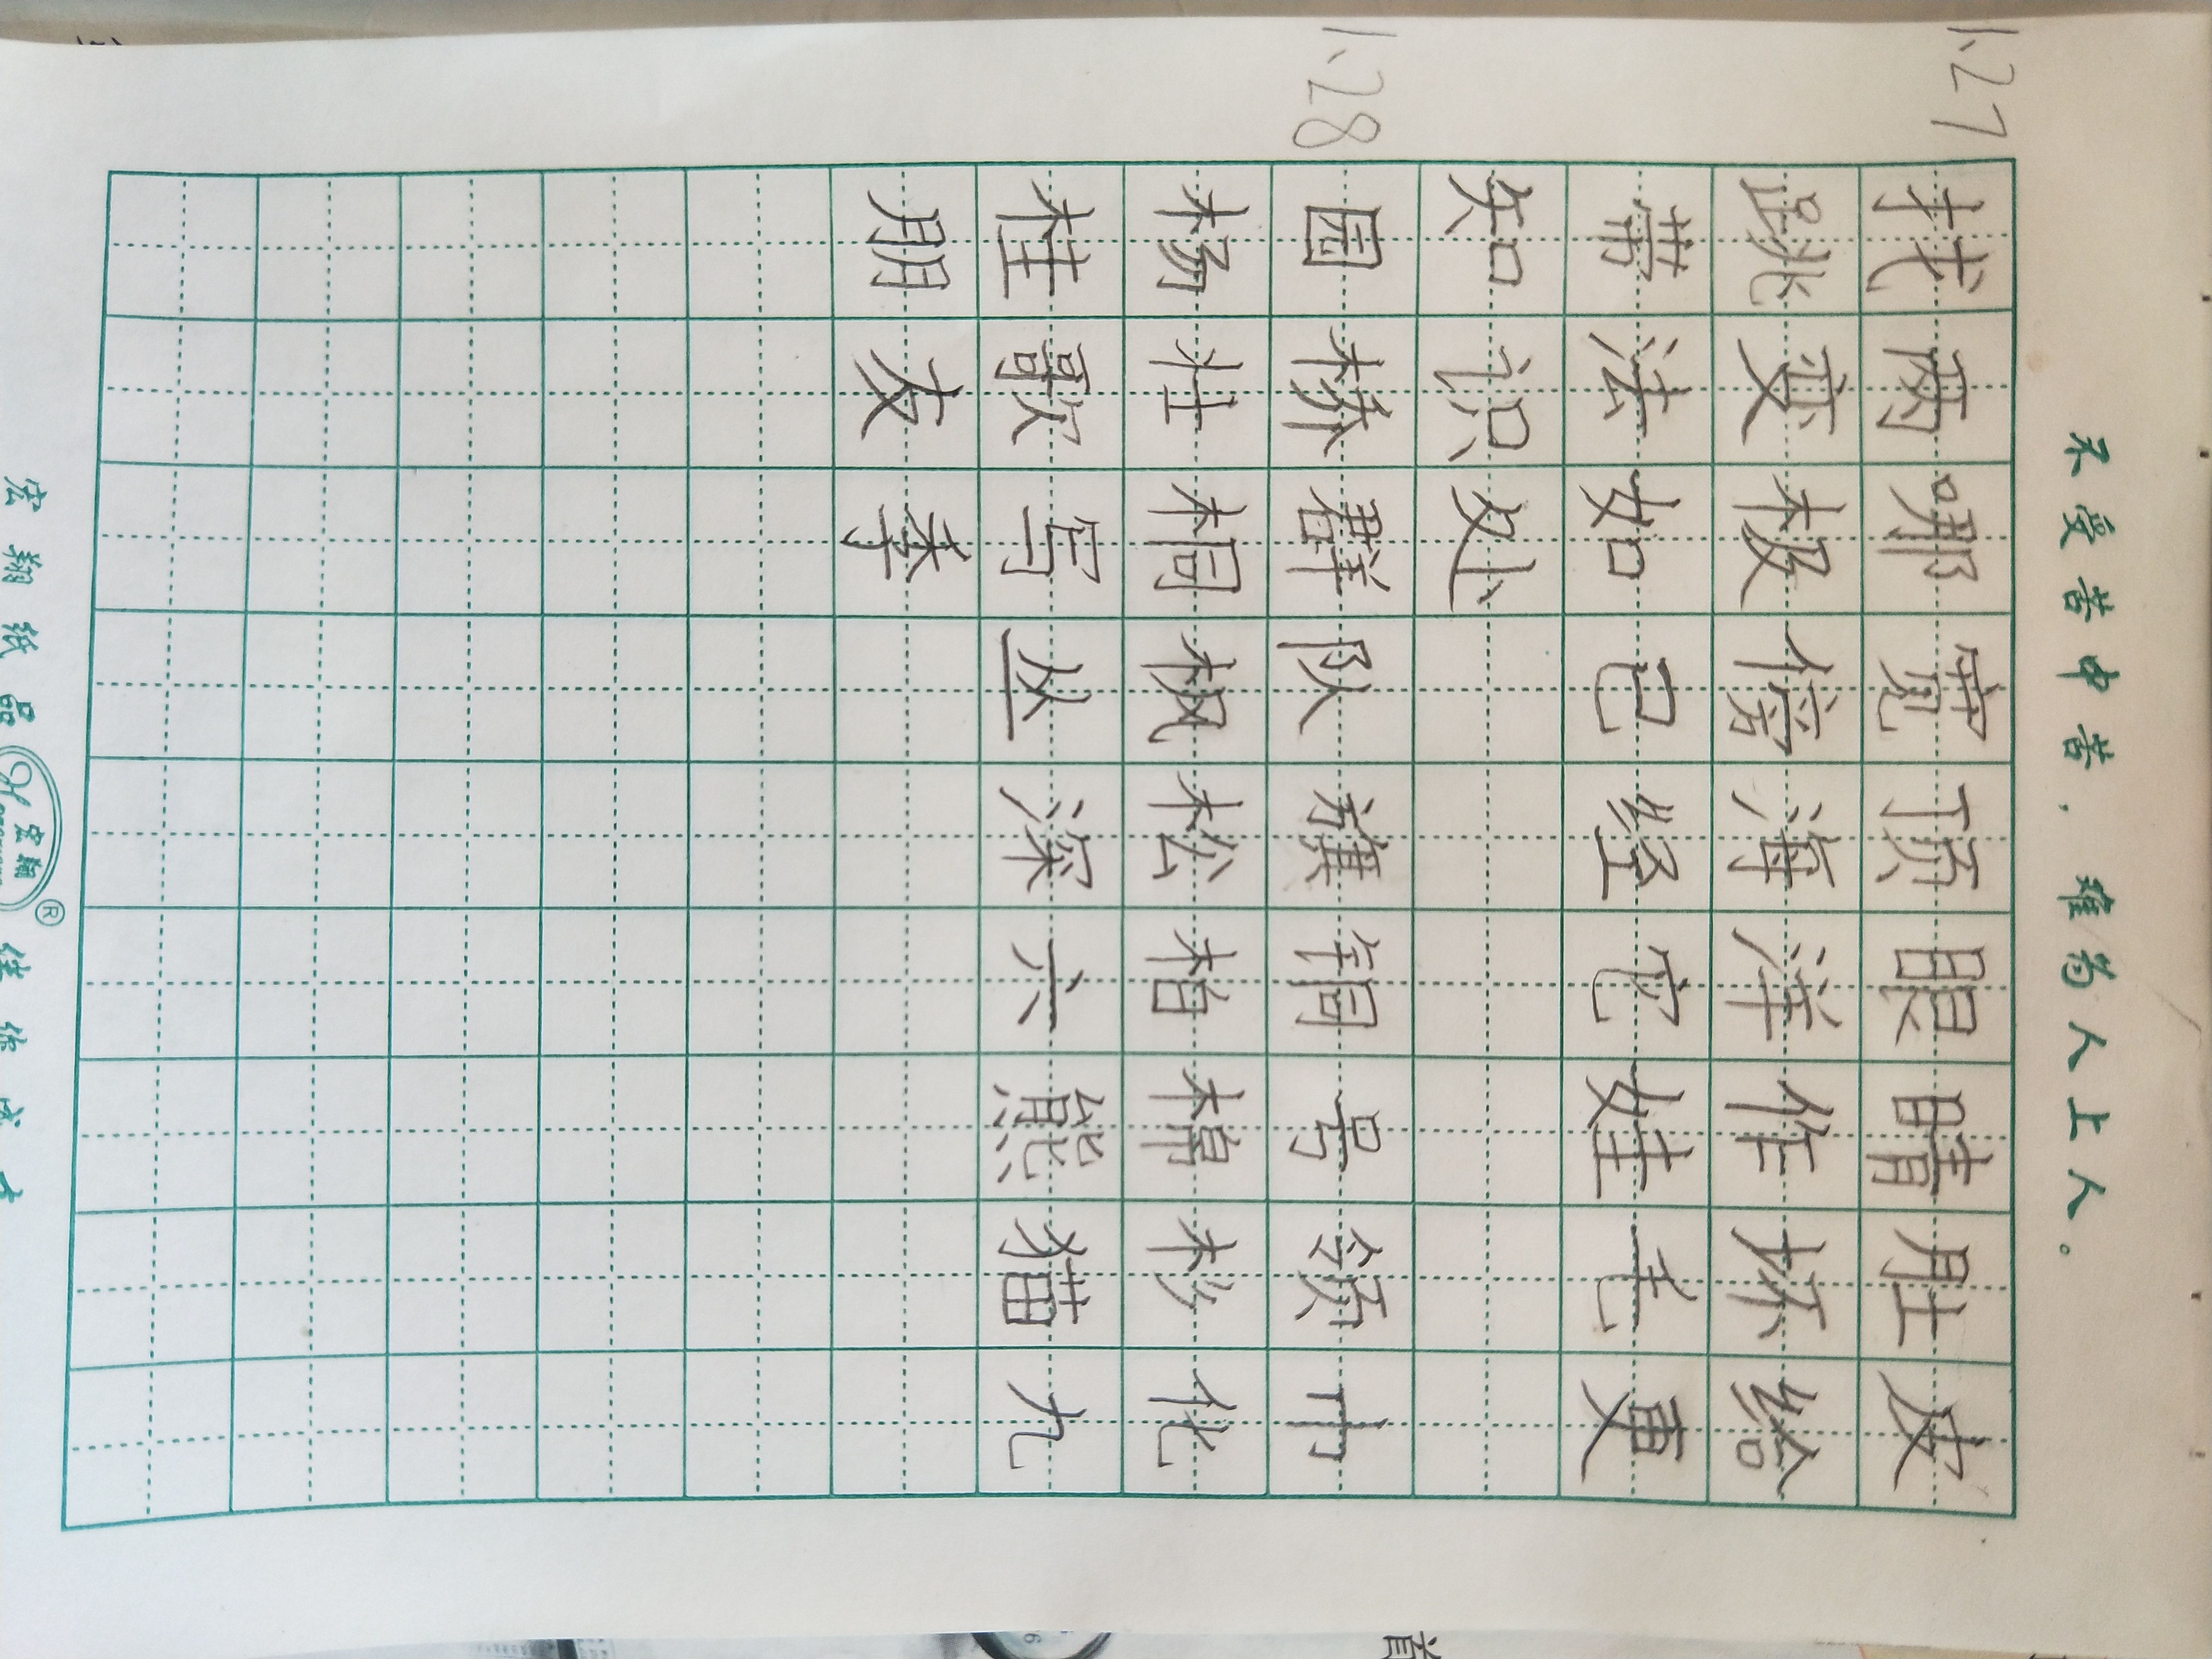 不受苦中苦，难为人上人。
1.27
找两哪宽顶眼睛肚皮
跳变极傍海洋作坏给
带法如已经它娃毛更
知识处
1.28
园桥群队旗铜号领巾
杨壮桐枫松柏棉杉化
桂歌写丛深六熊猫九
朋友季
宏翔纸品 宏翔 ®
首